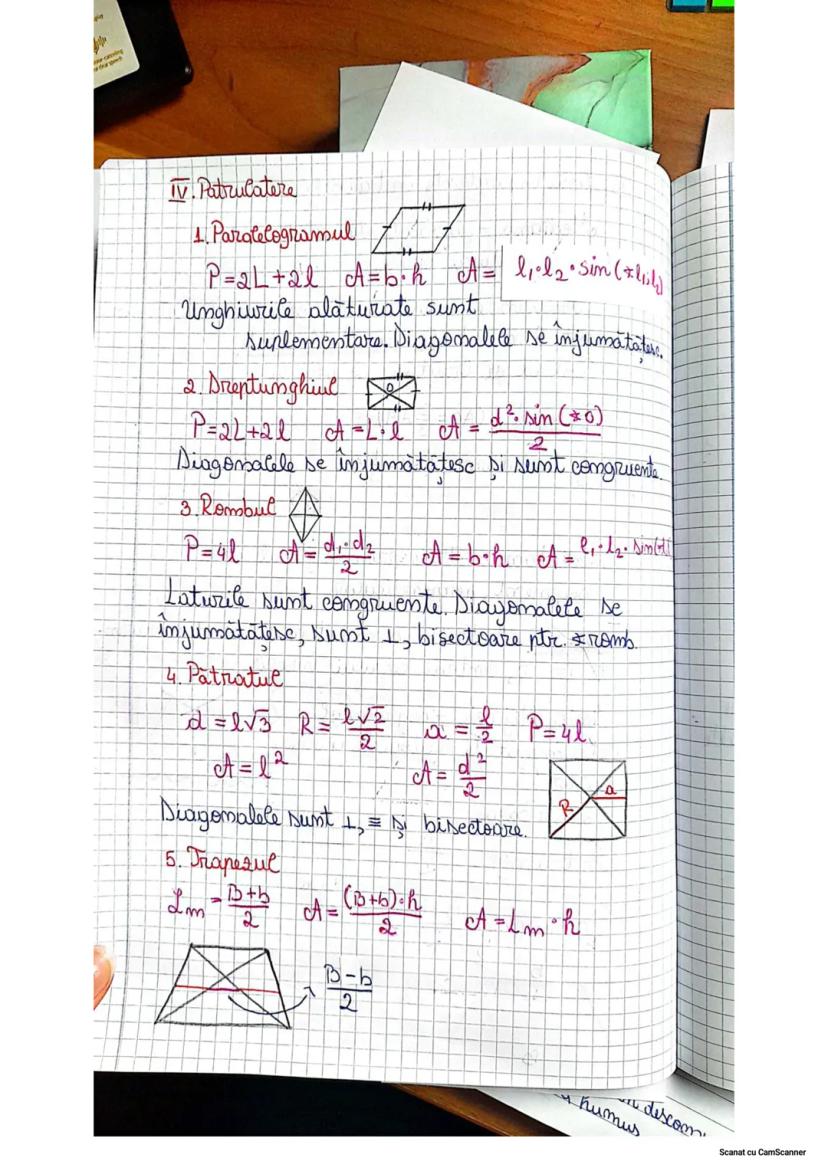 IV. Patrulatere
1. Paralelogramul
P=2L+2l A=b·h A= l₁·l₂·sin(∢l₁,l₂)
Unghiurile alăturate sunt
suplementare. Diagonalele se înjumătățesc.
2. Dreptunghiul O
P=2L+2l A=L·l A= d²·sin(∢O)/2
Diagonalele se înjumătățesc și sunt congruente.
3. Rombul
P=4l A= d₁·d₂/2 A=b·h A= l₁·l₂·sin
Laturile sunt congruente. Diagonalele se
înjumătățesc, sunt ⊥, bisectoare ptr. ∢romb.
4. Pătratul
d=l√3 R= l√2/2 a= l/2 P=4l
A=l² A= d²/2
R a
Diagonalele sunt ⊥, ≡ și bisectoare.
5. Trapezul
Lm= B+b/2 A= (B+b)·h/2 A=Lm·h
B-b/2
humus
Scanat cu CamScanner